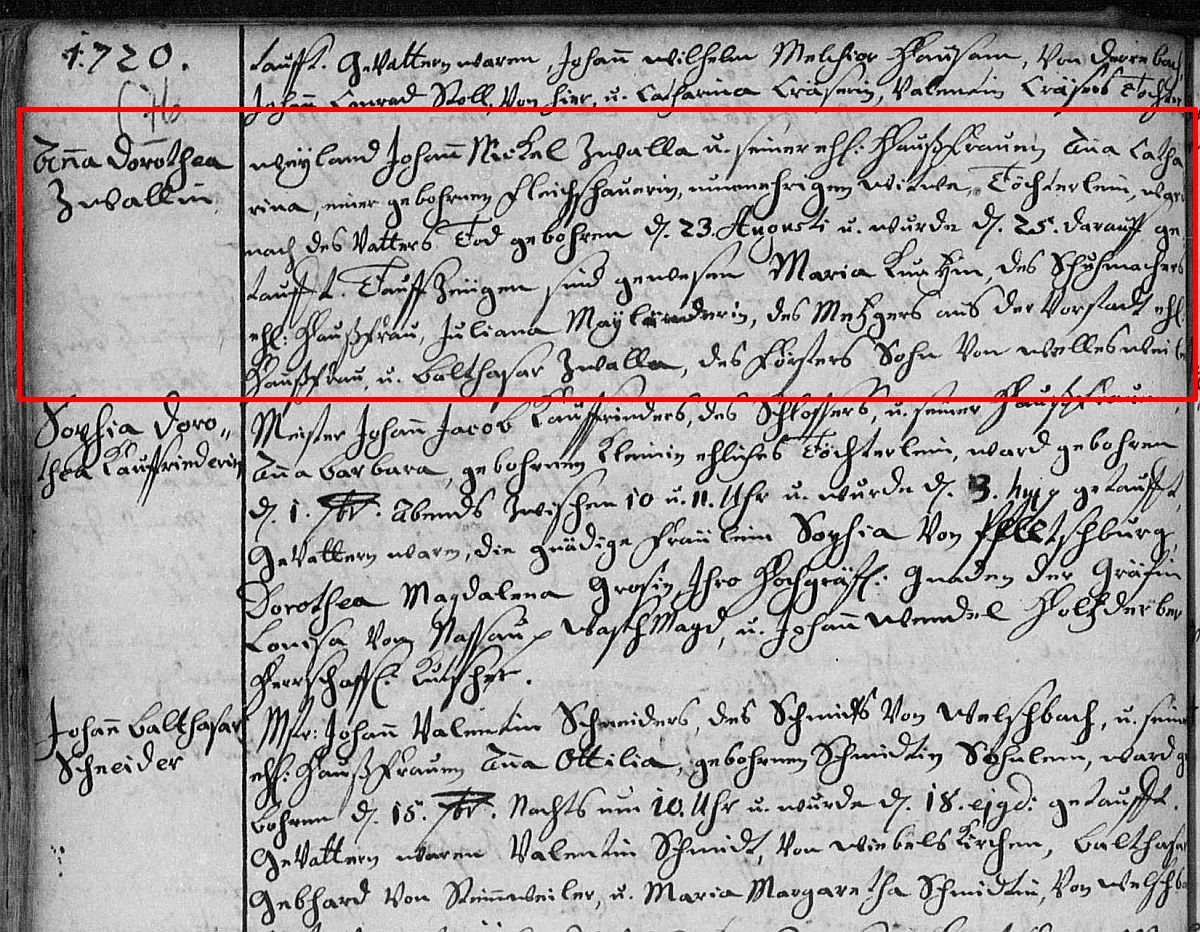 1720.
taufft. Gevattern waren, Johann Wilhelm Melchior Hausam, von
Johann Conrad Stoll, von hier, u. Catharina Cräserin, Valentin Cräsers Tochter
Anna Dorothea
Zwallin
weyland Johann Nickel Zwalla u. seiner ehl: Haußfrauen Anna Catha
rina, einer gebohrnen Fleischhauerin, nunmehrigen Witwe, Töchterlein, ward
nach des Vatters Tod gebohren d. 23. Augusti u. wurde d. 25. darauff ge
taufft. Tauffzeugen sind gewesen Maria, des Schuhmachers
ehl: Haußfrau, Juliana Mayländerin, des Metzgers aus der Vorstadt ehl.
Haußfrau, u. Balthasar Zwalla, des Försters Sohn von Wellesweile
Sophia Doro„
thea Kauffrinderin
Meister Johann Jacob Kauffrinders, des Schlossers, u. seiner Haußfrauen,
Anna Barbara, gebohrnen Kleinin ehliches Töchterlein, ward gebohren
d. 1. 7br: Abends zwischen 10 u. 11. Uhr u. wurde d. 3. hujus getaufft,
Gevattern waren, die gnädige Fräulein Sophia von
Dorothea Magdalena Grosin, Ihro Hochgräffl: Gnaden der Gräfin
Louisa von Nassau p Waschmagd, u. Johann Wendel Holtzderber
Herrschaffl: Kutscher.
Johann Balthasar
Schneider
Mstr: Johann Valentin Schneiders, des Schmids von Welschbach, u. seiner
ehl: Haußfrauen Anna Ottilia, gebohrnen Schmidtin Söhnlein, ward ge
bohren d. 15. 7br: Nachts um 10. Uhr u. wurde d. 18. ejusd: getaufft.
Gevattern waren Valentin Schmidt, von Wiebelskirchen, Balthasar
Gebhard von Stennweiler, u. Maria Margaretha Schmidtin, von Welschb